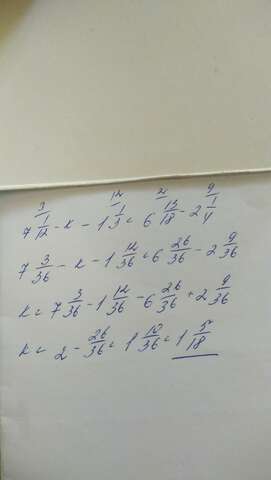 3 12 2 9
7 1/12 - к - 1 1/3 = 6 13/18 - 2 1/4
7 3/36 - к - 1 12/36 = 6 26/36 - 2 9/36
к = 7 3/36 - 1 12/36 - 6 26/36 + 2 9/36
к = 2 - 26/36 = 1 10/36 = 1 5/18